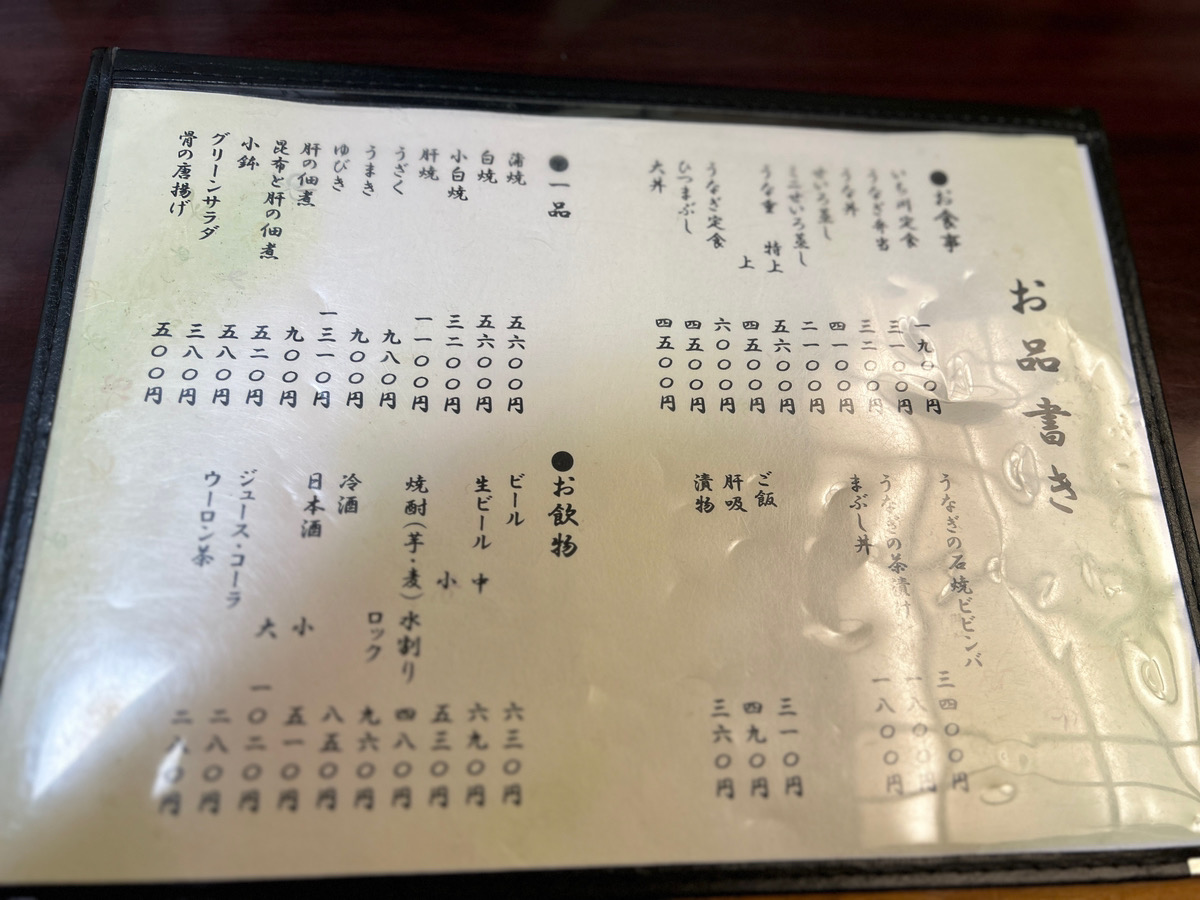 お品書き
●お食事
いち川定食 一九〇〇円
うなぎ弁当 三一〇〇円
うな丼 三二〇〇円
せいろ蒸し 四一〇〇円
ミニせいろ蒸し 二一〇〇円
うな重 特上 五六〇〇円
上 四五〇〇円
うなぎ定食 六〇〇〇円
ひつまぶし 四五〇〇円
大丼 四五〇〇円
うなぎの石焼ビビンバ 三四〇〇円
うなぎの茶漬け 一八〇〇円
まぶし丼 一八〇〇円
ご飯 三一〇円
肝吸 四九〇円
漬物 三六〇円
●一品
蒲焼 五六〇〇円
白焼 五六〇〇円
小白焼 三二〇〇円
肝焼 一一〇〇円
うざく 九八〇円
うまき 九〇〇円
ゆびき 一三一〇円
肝の佃煮 九〇〇円
昆布と肝の佃煮 五二〇円
小鉢 五八〇円
グリーンサラダ 三八〇円
骨の唐揚げ 五〇〇円
●お飲物
ビール 六三〇円
生ビール 中 六九〇円
小 五三〇円
焼酎（芋・麦）水割り 四八〇円
ロック 九六〇円
冷酒 八五〇円
日本酒 小 五一〇円
大 一〇二〇円
ジュース・コーラ 二八〇円
ウーロン茶 二八〇円